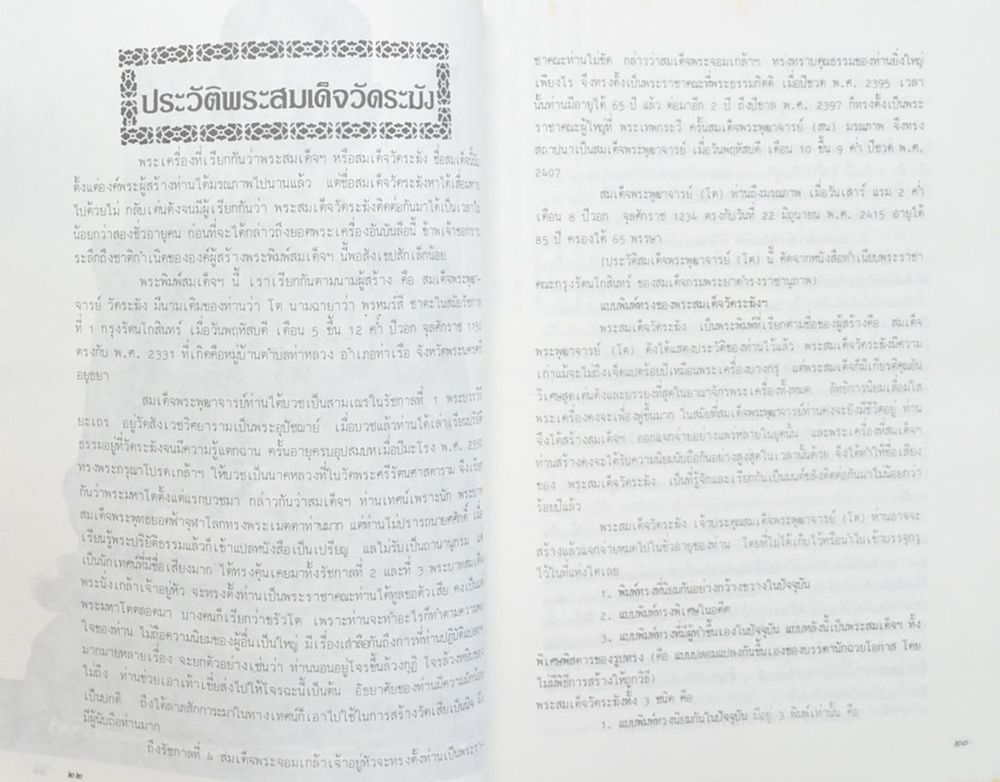 ประวัติพระสมเด็จวัดระฆัง
พระเครื่องที่เรียกกันว่าพระสมเด็จฯ หรือสมเด็จวัดระฆัง ชื่อสมเด็จนั้น
ตั้งแต่องค์พระผู้สร้างท่านได้มรณภาพไปนานแล้ว แต่ชื่อสมเด็จวัดระฆังหาได้เสื่อมหาย
ไปด้วยไม่ กลับเด่นดังจนมีผู้เรียกกันว่า พระสมเด็จวัดระฆังติดต่อกันมาได้เป็นเวลาไม่
น้อยกว่าสองชั่วอายุคน ก่อนที่จะได้กล่าวถึงยอดพระเครื่องอันบันลือนี้ ข้าพเจ้าขอกราบ
ระลึกถึงชาติกำเนิดขององค์ผู้สร้างพระพิมพ์สมเด็จฯ นี้พอสังเขปสักเล็กน้อย
พระพิมพ์สมเด็จฯ นี้ เราเรียกกันตามนามผู้สร้าง คือ สมเด็จพระพุฒา-
จารย์ วัดระฆัง มีนามเดิมของท่านว่า โต นามฉายาว่า พรหมรังสี ชาตะในสมัยรัชกาล
ที่ 1 กรุงรัตนโกสินทร์ เมื่อวันพฤหัสบดี เดือน 5 ขึ้น 12 ค่ำ ปีวอก จุลศักราช 1150
ตรงกับ พ.ศ. 2331 ที่เกิดคือหมู่บ้านตำบลท่าหลวง อำเภอท่าเรือ จังหวัดพระนครศรี
อยุธยา
สมเด็จพระพุฒาจารย์ท่านได้บวชเป็นสามเณรในรัชกาลที่ 1 พระบวรวิริ
ยะเถร อยู่วัดสังเวชวิศยารามเป็นพระอุปัชฌาย์ เมื่อบวชแล้วท่านได้เล่าเรียนปริยัติ
ธรรมอยู่ที่วัดระฆังจนมีความรู้แตกฉาน ครั้นอายุครบอุปสมบทเมื่อปีมะโรง พ.ศ. 2350
ทรงพระกรุณาโปรดเกล้าฯ ให้บวชเป็นนาคหลวงที่ในวัดพระศรีรัตนศาสดาราม จึงเรียก
กันว่าพระมหาโตตั้งแต่แรกบวชมา กล่าวกันว่าสมเด็จฯ ท่านเทศน์เพราะนัก พระบาท
สมเด็จพระพุทธยอดฟ้าจุฬาโลกทรงพระเมตตาท่านมาก แต่ท่านไม่ปรารถนายศศักดิ์ เมื่อ
เรียนรู้พระปริยัติธรรมแล้วก็เข้าแปลหนังสือเป็นเปรียญ แลไม่รับเป็นถานานุกรม แต่
เป็นนักเทศน์ที่มีชื่อเสียงมาก ได้ทรงคุ้นเคยมาทั้งรัชกาลที่ 2 และที่ 3 พระบาทสมเด็จ
พระนั่งเกล้าเจ้าอยู่หัว จะทรงตั้งท่านเป็นพระราชาคณะท่านได้ทูลขอตัวเสีย คงเป็นแต่
พระมหาโตตลอดมา บางคนก็เรียกว่าขรัวโต เพราะท่านจะทำอะไรก็ทำตามความพอ
ใจของท่าน ไม่ถือความนิยมของผู้อื่นเป็นใหญ่ มีเรื่องเล่าลือกันถึงการที่ท่านปฏิบัติแปลกๆ
มากมายหลายเรื่อง จะยกตัวอย่างเช่นว่า ท่านนอนอยู่โจรขึ้นล้วงกุฏิ โจรล้วงหยิบของ
ไม่ถึง ท่านช่วยเอาเท้าเขี่ยส่งไปให้โจรฉะนี้เป็นต้น อัธยาศัยของท่านมีความมักน้อย
เป็นปกติ ถึงได้ลาภสักการะมาในทางเทศน์ก็เอาไปใช้ในการสร้างวัดเสียเป็นนิจ จึง
มีผู้นับถือท่านมาก
ถึงรัชกาลที่ 4 สมเด็จพระจอมเกล้าเจ้าอยู่หัวจะทรงตั้งท่านเป็นพระรา-
๒๒
ชาคณะท่านไม่ขัด กล่าวว่าสมเด็จพระจอมเกล้าฯ ทรงทราบคุณธรรมของท่านยิ่งใหญ่
เพียงไร จึงทรงตั้งเป็นพระราชาคณะที่พระธรรมกิตติ เมื่อปีชวด พ.ศ. 2395 เวลา
นั้นท่านมีอายุได้ 65 ปี แล้ว ต่อมาอีก 2 ปี ถึงปีขาล พ.ศ. 2397 ก็ทรงตั้งเป็นพระ
ราชาคณะผู้ใหญ่ที่ พระเทพกระวี ครั้นสมเด็จพระพุฒาจารย์ (สน) มรณภาพ จึงทรง
สถาปนาเป็นสมเด็จพระพุฒาจารย์ เมื่อวันพฤหัสบดี เดือน 10 ขึ้น 9 ค่ำ ปีชวด พ.ศ.
2407
สมเด็จพระพุฒาจารย์ (โต) ท่านถึงมรณภาพ เมื่อวันเสาร์ แรม 2 ค่ำ
เดือน 8 ปีวอก จุลศักราช 1234 ตรงกับวันที่ 22 มิถุนายน พ.ศ. 2415 อายุได้
85 ปี ครองได้ 65 พรรษา
(ประวัติสมเด็จพระพุฒาจารย์ (โต) นี้ คัดจากหนังสือทำเนียบพระราชา
คณะกรุงรัตนโกสินทร์ ของสมเด็จกรมพระยาดำรงราชานุภาพ)
แบบพิมพ์ทรงของพระสมเด็จวัดระฆังฯ
พระสมเด็จวัดระฆัง เป็นพระพิมพ์ที่เรียกตามชื่อของผู้สร้างคือ สมเด็จ
พระพุฒาจารย์ (โต) ดังได้แสดงประวัติของท่านไว้แล้ว พระสมเด็จวัดระฆังมีความ
เก่าแม้จะไม่ถึงเจ็ดแปดร้อยปีเหมือนพระเครื่องบางกรุ แต่พระสมเด็จก็มีเกียรติคุณอัน
วิเศษสุดเด่นดังและยรรยงที่สุดในอาณาจักรพระเครื่องทั้งหมด ลัทธิการนิยมเลื่อมใส
พระเครื่องคงจะเฟื่องฟูขึ้นมาก ในสมัยที่สมเด็จพระพุฒาจารย์ท่านคงจะยังมีชีวิตอยู่ ท่าน
จึงได้สร้างสมเด็จฯ ออกแจกจ่ายอย่างแพร่หลายในยุคนั้น และพระเครื่องที่สมเด็จฯ
ท่านสร้างคงจะได้รับความนิยมนับถือกันอย่างสูงสุดในเวลานั้นด้วย จึงได้ทำให้ชื่อเสียง
ของ พระสมเด็จวัดระฆัง เป็นที่รู้จักและเรียกกันเป็นมนต์ขลังติดต่อกันมาไม่น้อยกว่า
ร้อยปีแล้ว
พระสมเด็จวัดระฆัง เจ้าประคุณสมเด็จพระพุฒาจารย์ (โต) ท่านอาจจะ
สร้างแล้วแจกจ่ายหมดไปในชั่วอายุของท่าน โดยที่ไม่ได้เก็บไว้หรือนำไปเข้าบรรจุกรุ
ไว้ในที่แห่งใดเลย
1. พิมพ์ทรงที่นิยมกันอย่างกว้างขวางในปัจจุบัน
2. แบบพิมพ์ทรงพิเศษในอดีต
3. แบบพิมพ์ทรงที่มีผู้ทำขึ้นเองในปัจจุบัน แบบหลังนี้เป็นพระสมเด็จฯ ทั้ง
พิเศษพิสดารของรูปทรง (คือ แบบปลอมแปลงกันขึ้นเองของบรรดานักฉวยโอกาส โดย
ไม่มีพิธีการสร้างให้ถูกวิธี)
พระสมเด็จวัดระฆังทั้ง 3 ชนิด คือ
1. แบบพิมพ์ทรงนิยมกันในปัจจุบัน มีอยู่ 3 พิมพ์เท่านั้น คือ
๒๓